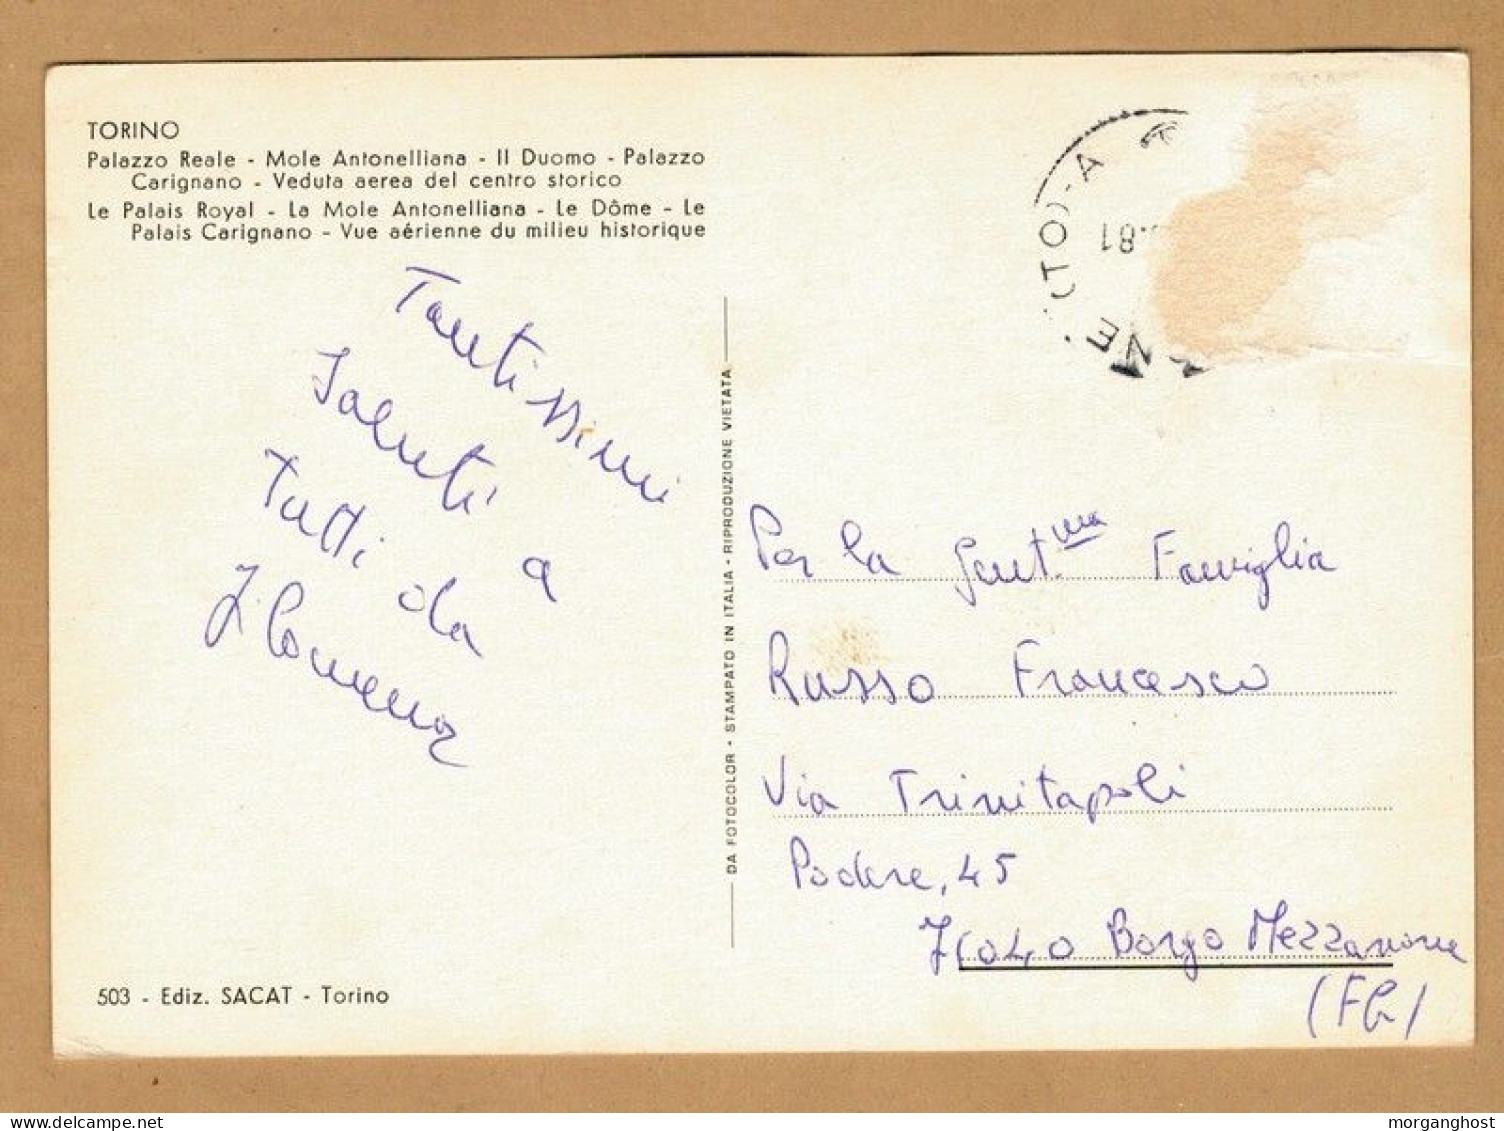 TORINO
Palazzo Reale - Mole Antonelliana - Il Duomo - Palazzo
Carignano - Veduta aerea del centro storico
Le Palais Royal - La Mole Antonelliana - Le Dôme - Le
Palais Carignano - Vue aérienne du milieu historique
Tantissimi
Saluti a
Tutti da
503 - Ediz. SACAT - Torino
DA FOTOCOLOR - STAMPATO IN ITALIA - RIPRODUZIONE VIETATA
(TO) - A
.81
Per la Gent.ma Famiglia
Russo Francesco
Via Trinitapoli
Podere, 45
71040 Borgo Mezzanone
(FG)
delcampe.net
morganghost